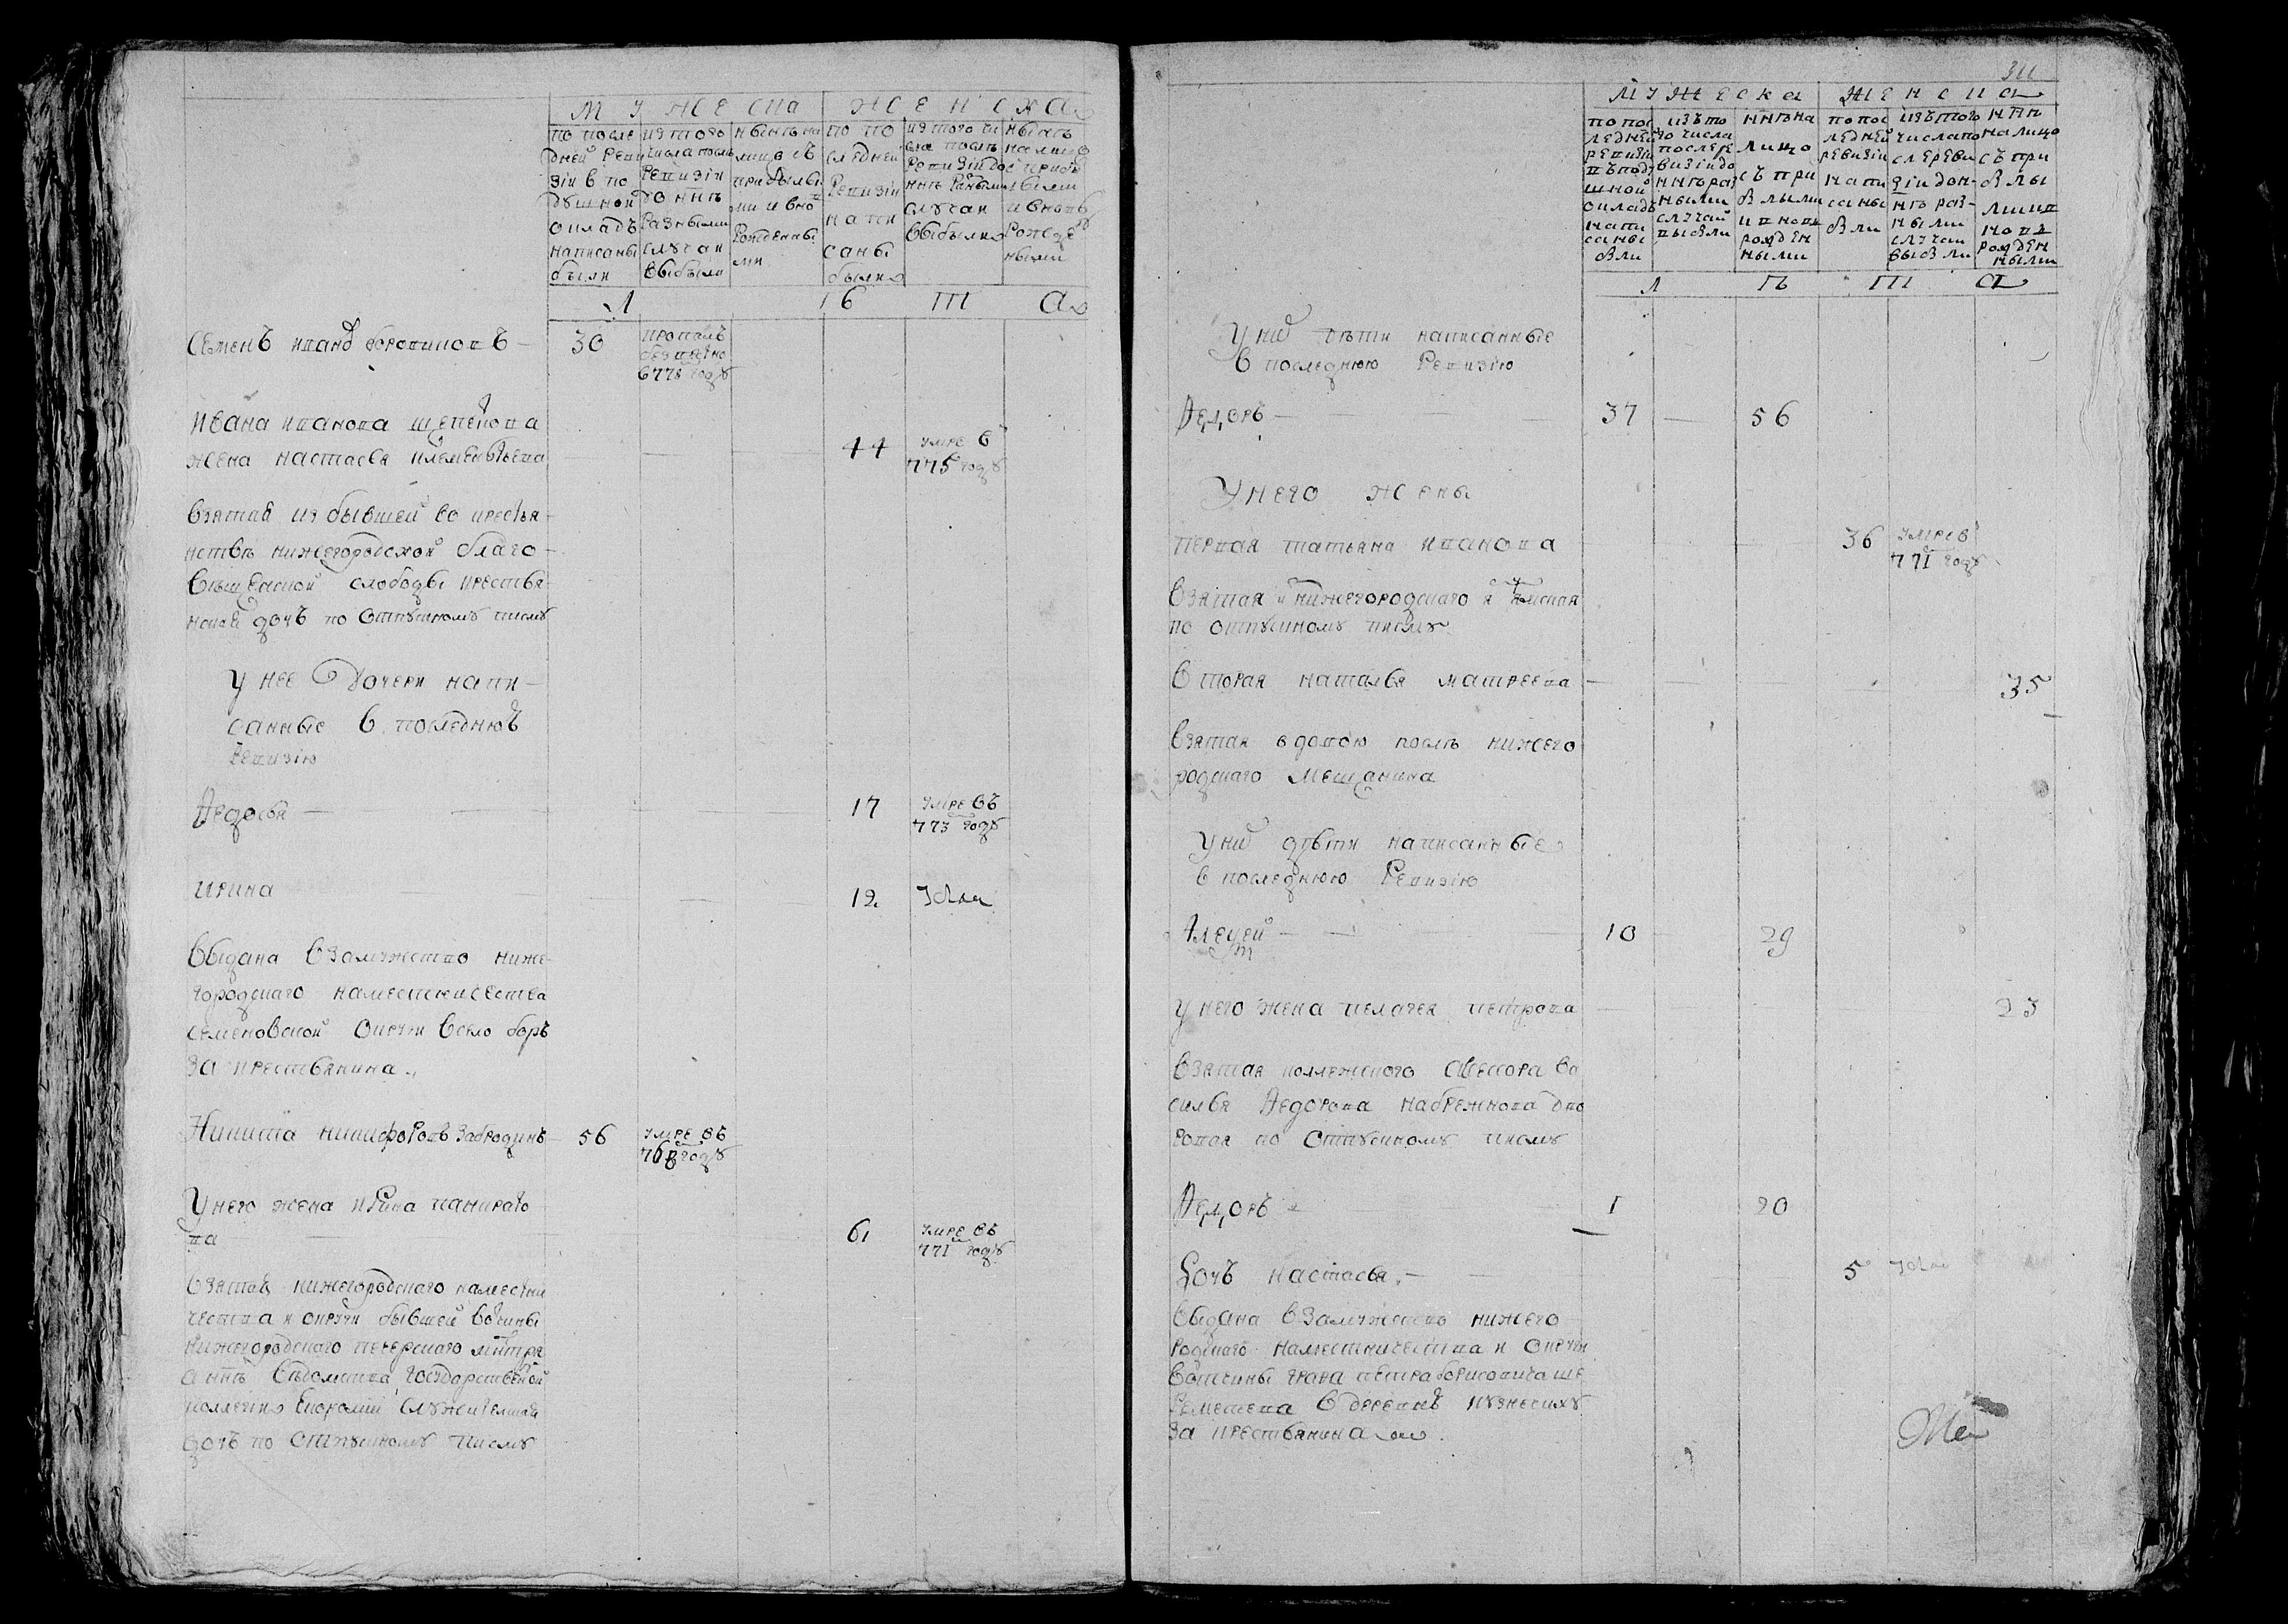 МУЖЕСКА ЖЕНСКА
по последней ревизіи в подушной окладъ написаны были
из того числа послѣ ревизіи до ннѣ разными случаи выбыли
ныне на лицо съ прибылыми и вновь рожденными
по последней ревизіи написаны были
из того числа послѣ ревизіи до ннѣ разными случаи выбыли
ныне на лицо с прибылыми и вновь рожденными
Л Ѣ Т А
Семенъ Иванов 30 пропалъ
безвѣсно
в 778 году
Ивана Иванова Щепетова
жена Настасья Климентьева 44 умре в
775 году
взятая из бывшей во крестья-
нствѣ нижегородской благо-
вещенской слободы крестья-
нская дочь по отпускному писму
У нее дочери напи-
санные в последнюю
ревизию
Федосья 17 умре въ
773 году
Ирина 12
выдана в замужество ниже-
городского наместничества
семеновской округи в село боръ
за крестьянина
Никита Никифоровъ Забродинъ 56 умре въ
году
У него жена Ирина Панкрато-
ва 61 умре въ
771 году
взятая нижегородского наместни-
чества и округи бывшей вотчины
нижегородского печерского мнтря
а ннѣ ведомства государственной
коллегии економии служителская
дочь по отпускному писму
311
МУЖЕСКА ЖЕНСКА
по последней ревизіи въ подушной окладъ написаны были
изъ того числа после ревизіи до ннѣ разными случаи выбыли
ннѣ на лицо съ прибылыми и вновь рожденными
по последней ревизіи написаны были
изъ того числа после ревизіи до ннѣ разными случаи выбыли
ннѣ на лицо съ прибылыми и вновь рожденными
Л Ѣ Т А
У них дѣти написанные
в последнюю ревизію
Федоръ 37 56
У него жены
первая Татьяна Иванова 36 умре в
771 году
взятая нижегородского
по отпускному писму
вторая Наталья Матвеева 35
взятая вдовою послѣ нижего
родского мещанина
У них дѣти написанные
в последнюю ревизію
Алексей 10 29
У него жена Пелагея Петрова 23
взятая коллежского асессора Ва
силья Федорова дво
ровая по отпускному писму
Федоръ 1 20
Дочь Настасья 5
выдана в замужество нижего
родского наместничества и округи
вотчины графа Петра Борисовича Ше
реметева в деревнѣ
за крестьянина